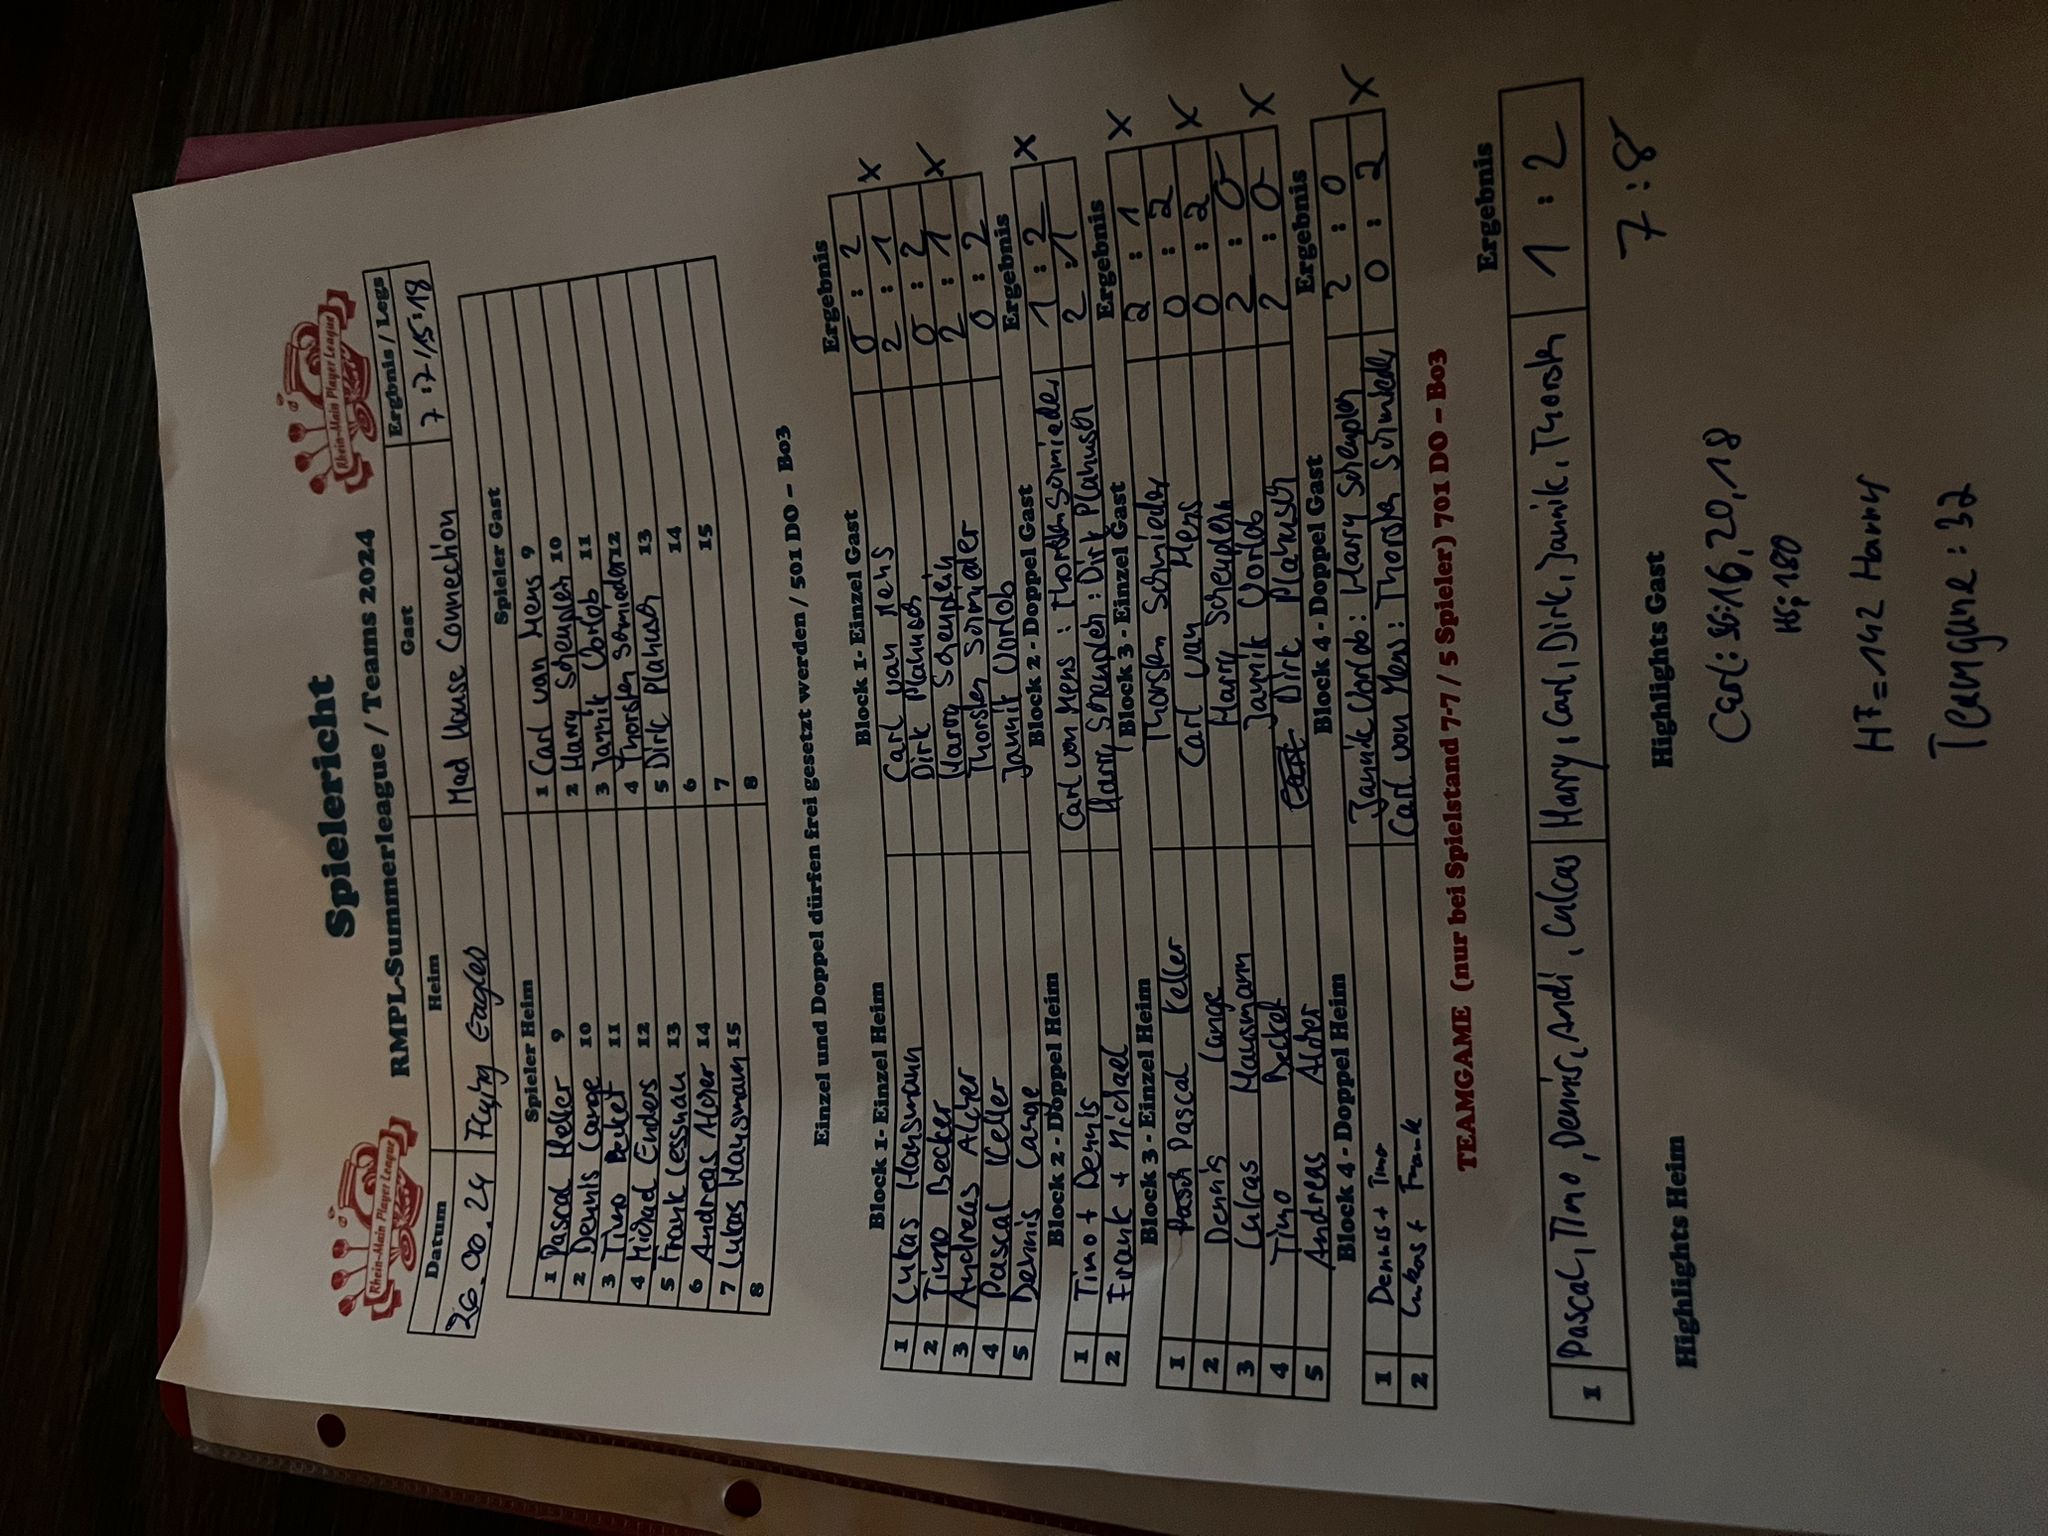 Spielericht
RMPL-Summerleague / Teams 2024
Rhein-Main Player League
Rhein-Main Player League
Datum Heim Gast Ergbnis / Legs
26.00.24 Flying Eagles Mad House Connection 7:7/15:18
Spieler Heim Spieler Gast
1 Pascal Keller 9 1 Carl van Hens 9
2 Dennis Lange 10 2 Harry Schemplein 10
3 Timo Becker 11 3 Jannik Vorlob 11
4 Michael Enders 12 4 Thorsten Schmieder 12
5 Frank Lessnau 13 5 Dirk Plahusch 13
6 Andreas Alcher 14 6 14
7 Lukas Hausmann 15 7 15
8 8
Einzel und Doppel dürfen frei gesetzt werden / 501 DO – Bo3
Block 1- Einzel Heim Block 1- Einzel Gast Ergebnis
1 Lukas Hausmann Carl van Hens 0 : 2 X
2 Timo Becker Dirk Plahusch 2 : 1
3 Andreas Alcher Harry Schemplein 0 : 2 X
4 Pascal Keller Thorsten Schmieder 2 : 1
5 Dennis Lange Jannik Vorlob 0 : 2
Block 2 - Doppel Heim Block 2 - Doppel Gast Ergebnis
1 Timo + Dennis Carl van Hens : Thorsten Schmieder 1 : 2 X
2 Frank + Michael Harry Schemplein : Dirk Plahusch 2 : 1
Block 3 - Einzel Heim Block 3 - Einzel Gast Ergebnis
1 Pascal Keller Thorsten Schmieder 2 : 1 X
2 Dennis Lange Carl van Hens 0 : 2
3 Lukas Hausmann Harry Schemplein 0 : 2 X
4 Timo Becker Jannik Vorlob 2 : 0
5 Andreas Alcher Dirk Plahusch 2 : 0 X
Block 4 - Doppel Heim Block 4 - Doppel Gast Ergebnis
1 Dennis + Timo Jannik Vorlob : Harry Schemplein 2 : 0
2 Lukas + Frank Carl van Hens : Thorsten Schmieder 0 : 2 X
TEAMGAME (nur bei Spielstand 7-7 / 5 Spieler) 701 DO – Bo3
Ergebnis
1 Pascal, Timo, Dennis, Andi, Lukas Harry, Carl, Dirk, Jannik, Thorsten 1 : 2
7 : 8
Highlights Heim Highlights Gast
Carl: SG: 16, 20, 18
HS: 180
HF = 142 Harry
Teamgame : 32